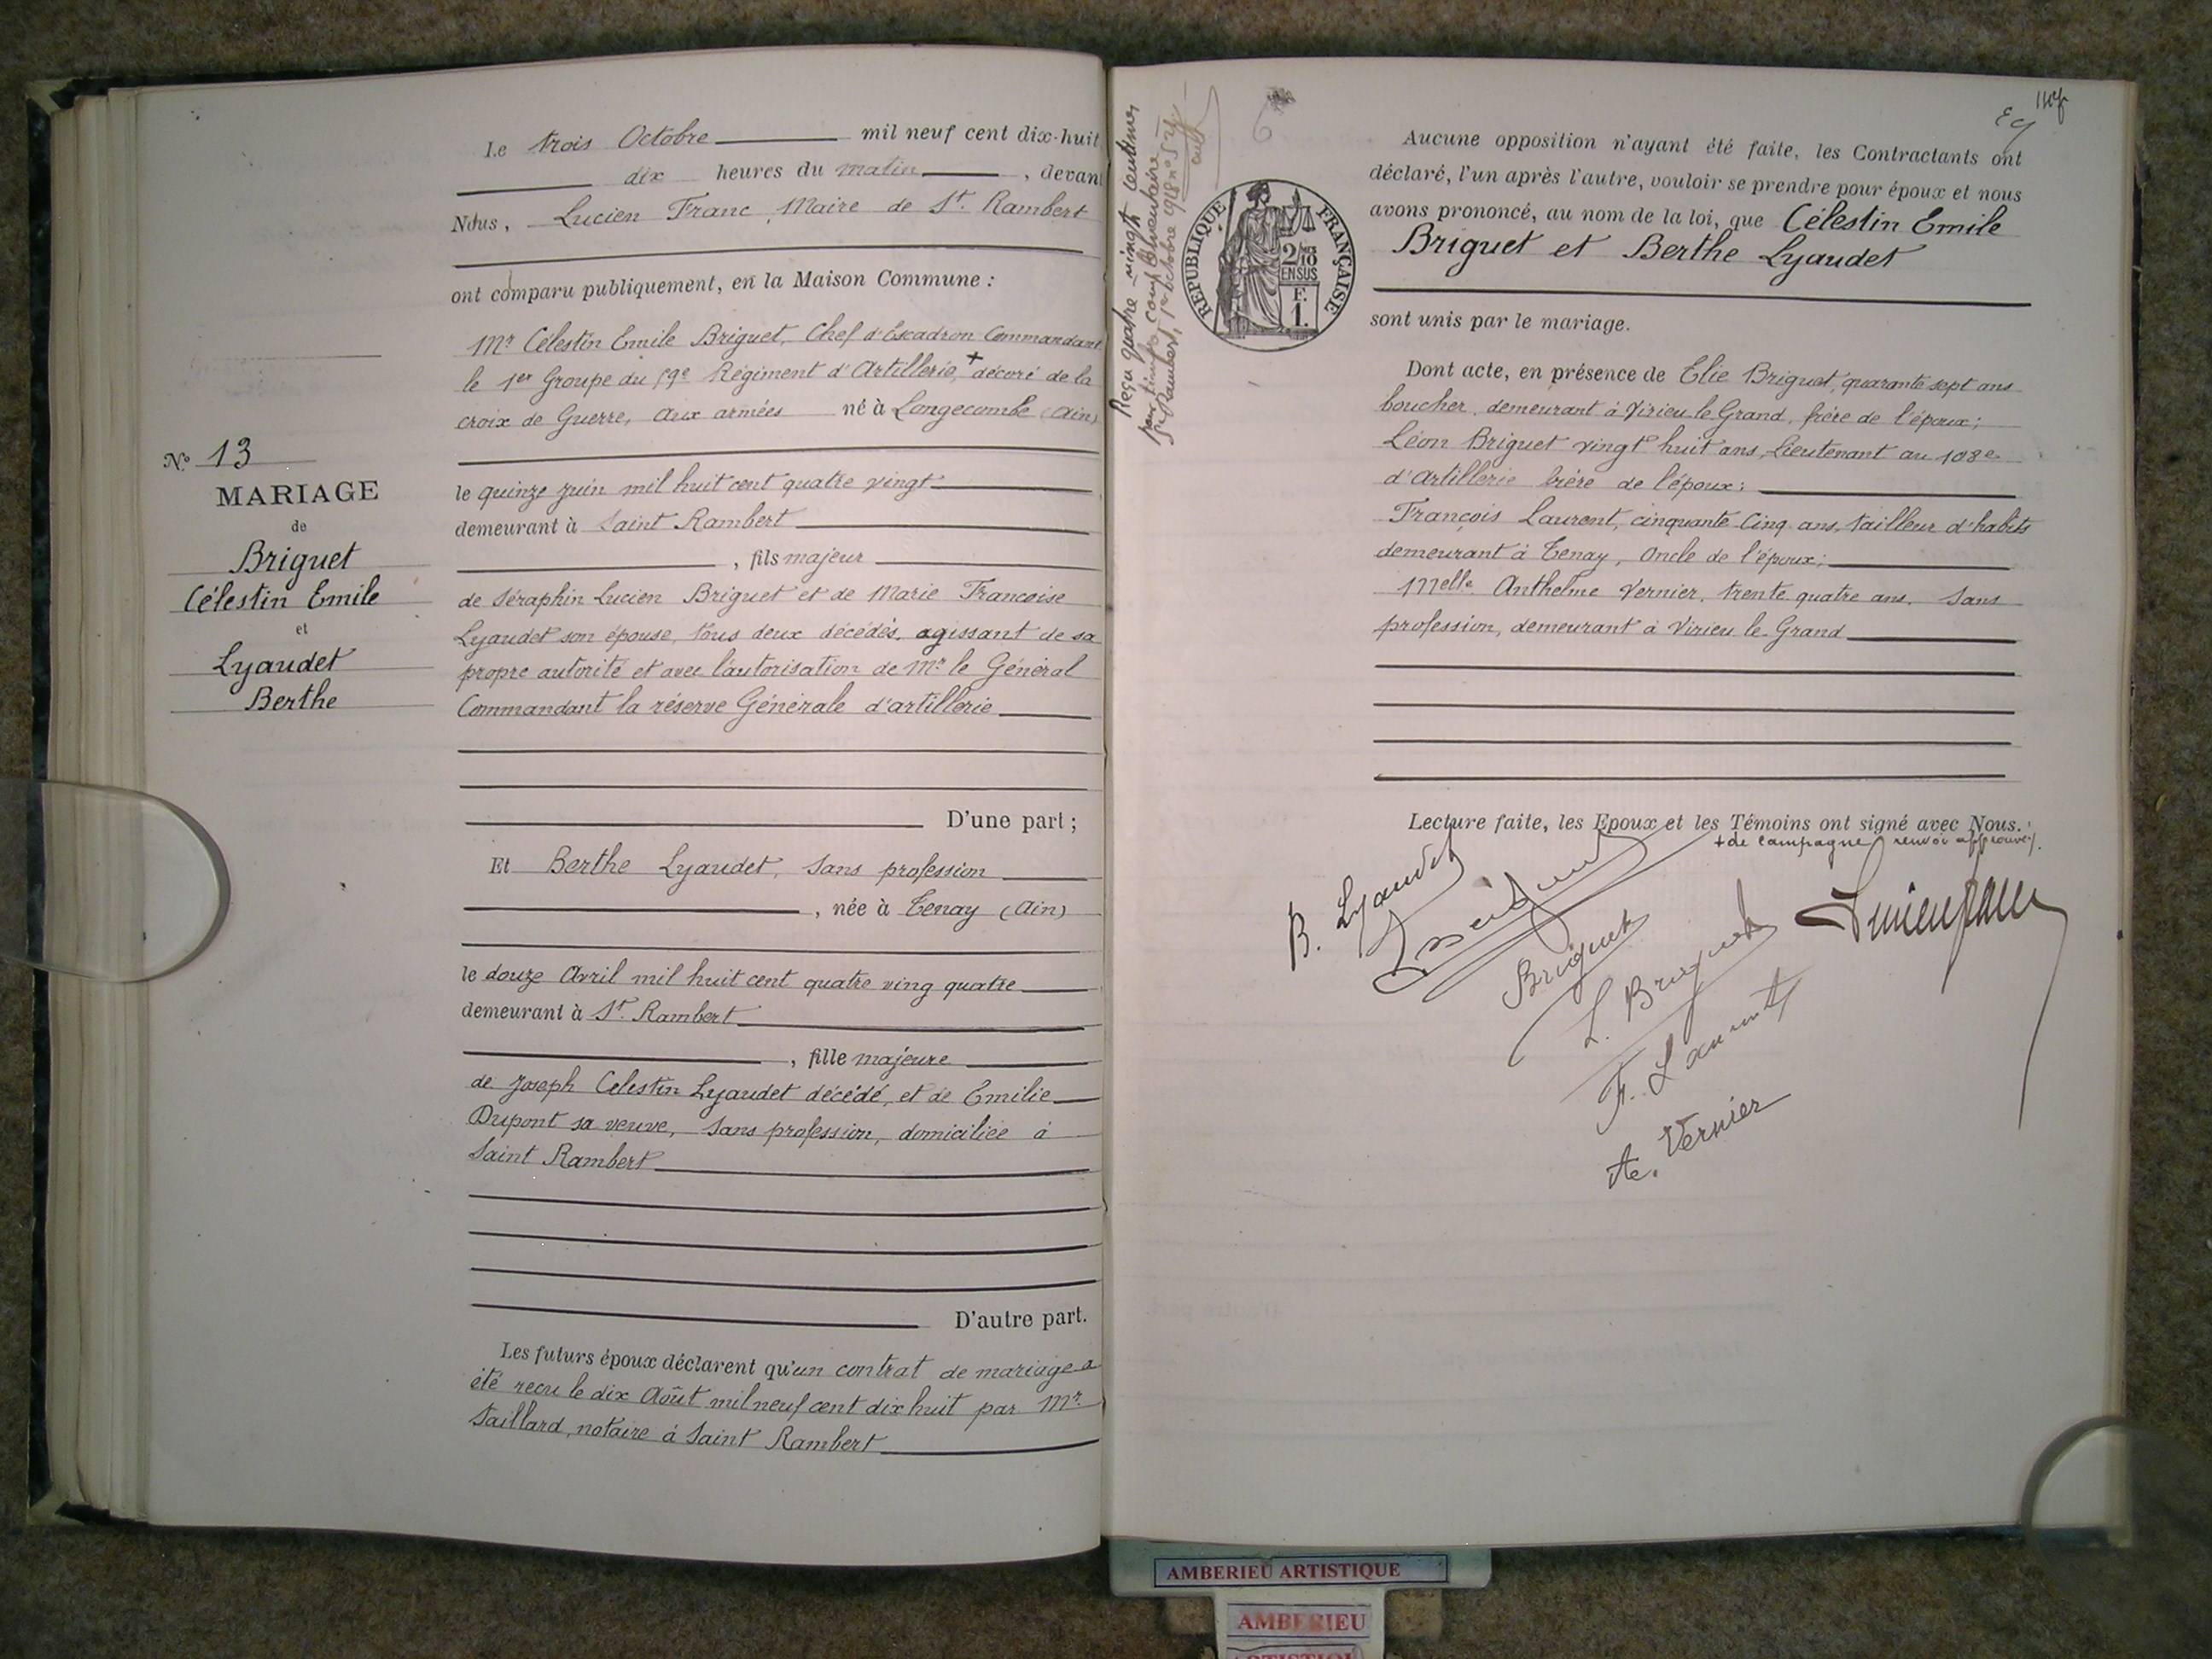 Le trois Octobre mil neuf cent dix-huit
dix heures du matin, devant
Nous, Lucien Franc, Maire de St. Rambert
ont comparu publiquement, en la Maison Commune :
Mr Célestin Emile Briguet, Chef d'Escadron Commandant
le 1er Groupe du 59e Régiment d'Artillerie, + décoré de la
croix de Guerre, aux armées né à Longecombe (Ain)
N° 13
MARIAGE
de
Briguet
Célestin Emile
et
Lyaudet
Berthe
le quinze Juin mil huit cent quatre vingt
demeurant à Saint Rambert
, fils majeur
de Séraphin Lucien Briguet et de Marie Francoise
Lyaudet son épouse, tous deux décédés, agissant de sa
propre autorité et avec l'autorisation de Mr le Général
Commandant la réserve Générale d'artillerie
D'une part ;
Et Berthe Lyaudet, Sans profession
, née à Tenay (Ain)
le douze Avril mil huit cent quatre ving quatre
demeurant à St. Rambert
, fille majeure
de Joseph Celestin Lyaudet décédé, et de Emilie
Dupont sa veuve, Sans profession, domiciliée à
Saint Rambert
D'autre part.
Les futurs époux déclarent qu'un contrat de mariage a
été recu le dix Août mil neuf cent dix huit par Mr.
Saillard, notaire à Saint Rambert
Reçu quatre-vingts centimes
pour timbre complémentaire
St Rambert, 1er Octobre 1918
REPUBLIQUE FRANÇAISE
2/10
EN SUS
F.
1.
Aucune opposition n'ayant été faite, les Contractants ont
déclaré, l'un après l'autre, vouloir se prendre pour époux et nous
avons prononcé, au nom de la loi, que Célestin Emile
Briguet et Berthe Lyaudet
sont unis par le mariage.
Dont acte, en présence de Elie Briguet, quarante sept ans
boucher, demeurant à Virieu le Grand, frère de l'époux ;
Léon Briguet vingt huit ans, Lieutenant au 108e
d'Artillerie frère de l'époux ;
François Laurent, cinquante Cinq ans, tailleur d'habits
demeurant à Tenay, Oncle de l'époux ;
Melle Anthelme Vernier, trente quatre ans. Sans
profession, demeurant à Virieu le Grand
Lecture faite, les Epoux et les Témoins ont signé avec Nous.
+ de campagne, renvoi approuvé
B. Lyaudet
Briguet
L. Briguet
F. Laurent
A. Vernier
Lucien Franc
AMBERIEU ARTISTIQUE
AMBERIEU